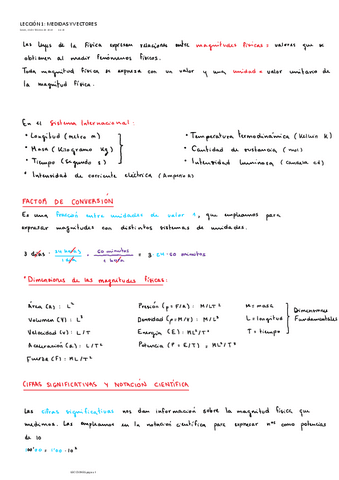 LECCIÓN 1: MEDIDAS Y VECTORES
Las leyes de la Física expresan relaciones entre magnitudes físicas: valores que se
obtienen al medir fenómenos físicos.
Toda magnitud física se expresa con un valor y una unidad = valor unitario de
la magnitud física.
En el Sistema Internacional:
• Longitud (metro m)
• Masa (Kilogramo Kg)
• Tiempo (segundo s)
• Intensidad de corriente eléctrica (Amperio A)
• Temperatura termodinámica (Kelvin K)
• Cantidad de sustancia (mol)
• Intensidad luminosa (candela cd)
FACTOR DE CONVERSIÓN
Es una fracción entre unidades de valor 1, que empleamos para
expresar magnitudes con distintos sistemas de unidades.
3 días · 24 horas / 1 día · 60 minutos / 1 hora = 3 · 24 · 60 minutos
• Dimensiones de las magnitudes físicas:
Área (A): L²
Volumen (V): L³
Velocidad (v): L/T
Aceleración (a): L/T²
Fuerza (F): ML/T²
Presión (p = F/A): M/LT²
Densidad (ρ = M/V): M/L³
Energía (E): ML²/T²
Potencia (P = E/T) = ML²/T³
M = masa
L = longitud
T = tiempo
Dimensiones
Fundamentales
CIFRAS SIGNIFICATIVAS Y NOTACIÓN CIENTÍFICA
Las cifras significativas nos dan información sobre la magnitud física que
medimos. Las empleamos en la notación científica para expresar nºs como potencias
de 10